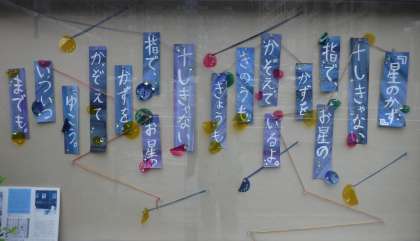 『星のかず』
十しきゃない
指で、
お星の
かずを
かぞえて
いるよ。
きのうも
きょうも
十しきゃない
指で、
お星の
かずを
かぞえて
ゆこう。
いついつ
までも。